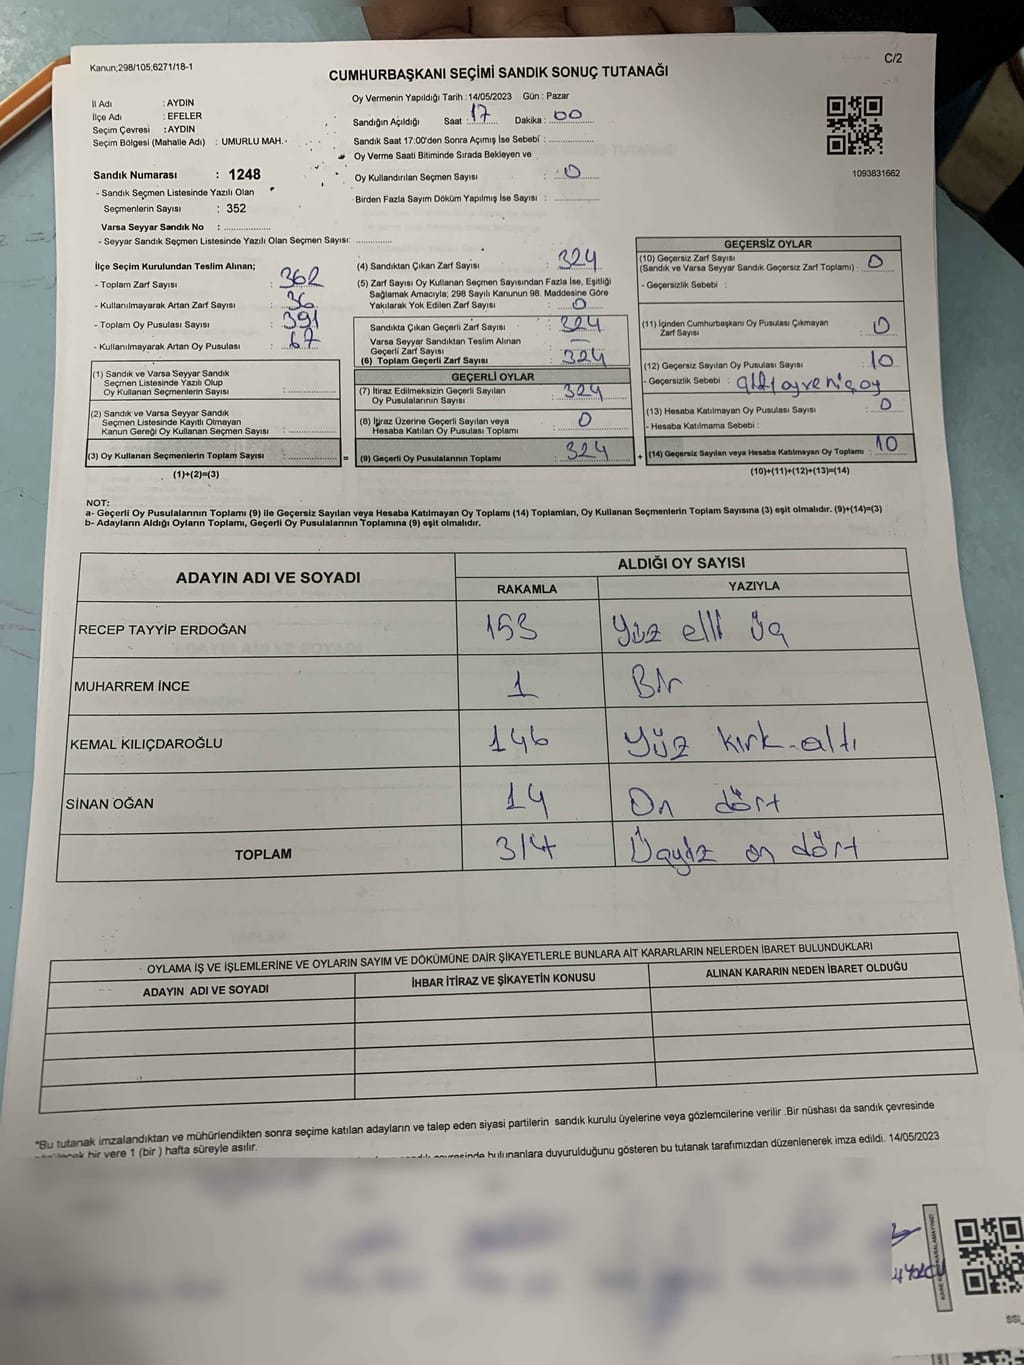 Kanun;298/105;6271/18-1
C/2
CUMHURBAŞKANI SEÇİMİ SANDIK SONUÇ TUTANAĞI
İl Adı : AYDIN
İlçe Adı : EFELER
Seçim Çevresi : AYDIN
Seçim Bölgesi (Mahalle Adı) : UMURLU MAH.
Sandık Numarası : 1248
- Sandık Seçmen Listesinde Yazılı Olan
Seçmenlerin Sayısı : 352
Varsa Seyyar Sandık No : ..............
- Seyyar Sandık Seçmen Listesinde Yazılı Olan Seçmen Sayısı: ............
Oy Vermenin Yapıldığı Tarih : 14/05/2023 Gün : Pazar
Sandığın Açıldığı Saat : 17 Dakika : 00
Sandık Saat 17:00'den Sonra Açımış İse Sebebi : ..............
Oy Verme Saati Bitiminde Sırada Bekleyen ve
Oy Kullandırılan Seçmen Sayısı : 0
Birden Fazla Sayım Döküm Yapılmış İse Sayısı : ..............
1093831662
İlçe Seçim Kurulundan Teslim Alınan;
- Toplam Zarf Sayısı : 362
- Kullanılmayarak Artan Zarf Sayısı : 36
- Toplam Oy Pusulası Sayısı : 391
- Kullanılmayarak Artan Oy Pusulası : 67
(1) Sandık ve Varsa Seyyar Sandık
Seçmen Listesinde Yazılı Olup
Oy Kullanan Seçmenlerin Sayısı : ..............
(2) Sandık ve Varsa Seyyar Sandık
Seçmen Listesinde Kayıtlı Olmayan
Kanun Gereği Oy Kullanan Seçmen Sayısı : ..............
(3) Oy Kullanan Seçmenlerin Toplam Sayısı : .............. =
(1)+(2)=(3)
(4) Sandıktan Çıkan Zarf Sayısı : 324
(5) Zarf Sayısı Oy Kullanan Seçmen Sayısından Fazla İse, Eşitliği
Sağlamak Amacıyla; 298 Sayılı Kanunun 98. Maddesine Göre
Yakılarak Yok Edilen Zarf Sayısı : 0
Sandıkta Çıkan Geçerli Zarf Sayısı : 324
Varsa Seyyar Sandıktan Teslim Alınan
Geçerli Zarf Sayısı : —
(6) Toplam Geçerli Zarf Sayısı : 324
GEÇERLİ OYLAR
(7) İtiraz Edilmeksizin Geçerli Sayılan
Oy Pusulalarının Sayısı : 324
(8) İtiraz Üzerine Geçerli Sayılan veya
Hesaba Katılan Oy Pusulası Toplamı : 0
(9) Geçerli Oy Pusulalarının Toplamı : 324 +
GEÇERSİZ OYLAR
(10) Geçersiz Zarf Sayısı
(Sandık ve Varsa Seyyar Sandık Geçersiz Zarf Toplamı) : 0
- Geçersizlik Sebebi :
(11) İçinden Cumhurbaşkanı Oy Pusulası Çıkmayan
Zarf Sayısı : 0
(12) Geçersiz Sayılan Oy Pusulası Sayısı : 10
- Geçersizlik Sebebi :
(13) Hesaba Katılmayan Oy Pusulası Sayısı : 0
- Hesaba Katılmama Sebebi :
(14) Geçersiz Sayılan veya Hesaba Katılmayan Oy Toplamı : 10
(10)+(11)+(12)+(13)=(14)
NOT:
a- Geçerli Oy Pusulalarının Toplamı (9) ile Geçersiz Sayılan veya Hesaba Katılmayan Oy Toplamı (14) Toplamları, Oy Kullanan Seçmenlerin Toplam Sayısına (3) eşit olmalıdır. (9)+(14)=(3)
b- Adayların Aldığı Oyların Toplamı, Geçerli Oy Pusulalarının Toplamına (9) eşit olmalıdır.
ADAYIN ADI VE SOYADI ALDIĞI OY SAYISI
RAKAMLA YAZIYLA
RECEP TAYYİP ERDOĞAN 153 Yüz elli üç
MUHARREM İNCE 1 Bir
KEMAL KILIÇDAROĞLU 146 Yüz kırk-altı
SİNAN OĞAN 14 On dört
TOPLAM 314 Üçyüz on dört
OYLAMA İŞ VE İŞLEMLERİNE VE OYLARIN SAYIM VE DÖKÜMÜNE DAİR ŞİKAYETLERLE BUNLARA AİT KARARLARIN NELERDEN İBARET BULUNDUKLARI
ADAYIN ADI VE SOYADI İHBAR İTİRAZ VE ŞİKAYETİN KONUSU ALINAN KARARIN NEDEN İBARET OLDUĞU
*Bu tutanak imzalandıktan ve mühürlendikten sonra seçime katılan adayların ve talep eden siyasi partilerin sandık kurulu üyelerine veya gözlemcilerine verilir .Bir nüshası da sandık çevresinde
bir yere 1 (bir ) hafta süreyle asılır.
bulunanlara duyurulduğunu gösteren bu tutanak tarafımızdan düzenlenerek imza edildi. 14/05/2023